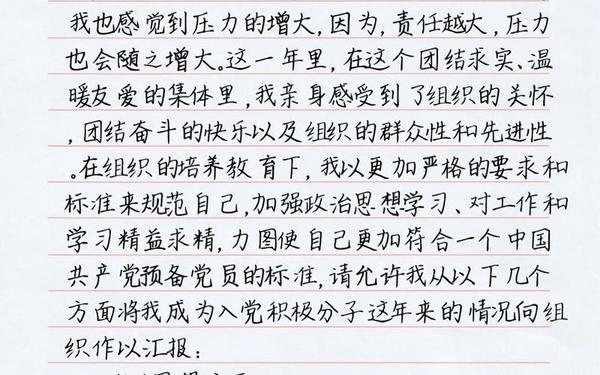 我也感觉到压力的增大,因为,责任越大,压力
也会随之增大。这一年里,在这个团结求实、温
暖友爱的集体里,我亲身感受到了组织的关怀
,团结奋斗的快乐以及组织的群众性和先进性
。在组织的培养教育下,我以更加严格的要求和
标准来规范自己,加强政治思想学习、对工作和
学习精益求精,力图使自己更加符合一个中国
共产党预备党员的标准,请允许我从以下几个
方面将我成为入党积极分子这年来的情况向组
织作以汇报: